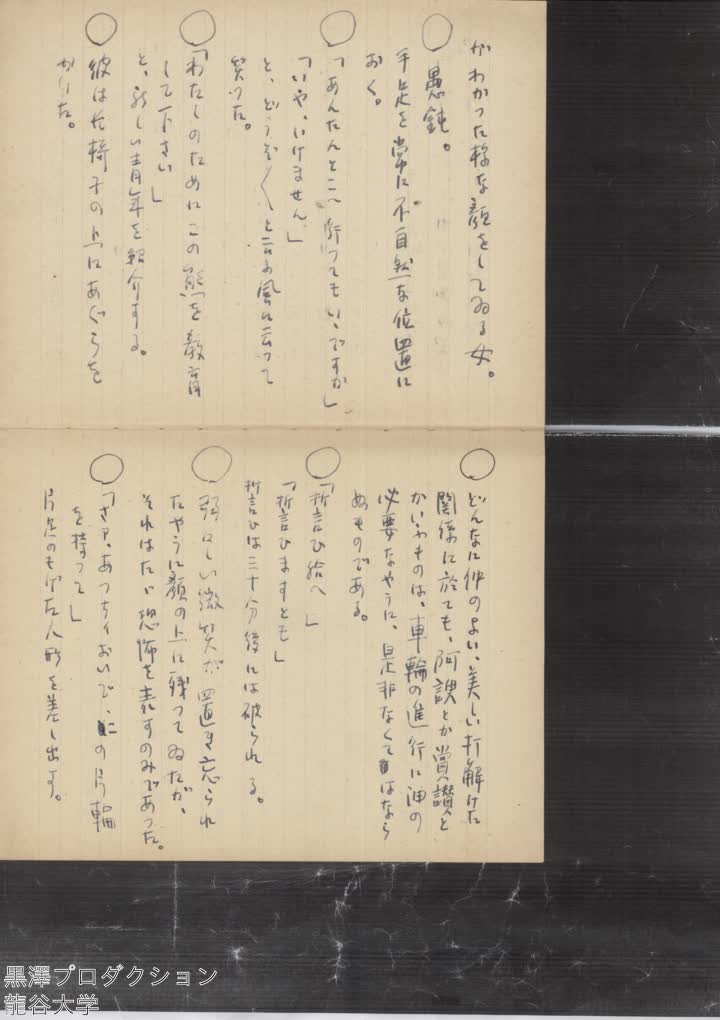 がわかった様な顔をしてゐる女。
○ 愚鈍。
手足を常に不自然な位置に
おく。
○「あんたんとこへ行つてもいゝですか」
「いや、いけません」
と、どうぞ〱と云ふ風に云つて
笑った。
○「わたしのためにこの熊を教育
して下さい」
と、新しい青年を紹介する。
○ 彼は長椅子の上にあぐらを
かいた。
○ どんなに仲のよい、美しい打解けた
関係に於ても、阿諛とか賞讃と
かいふものは、車輪の進行に油の
必要なやうに、是非なくてはなら
ぬものである。
○「誓ひ給へ」
「誓ひますとも」
誓ひは三十分後には破られる。
○ 弱々しい微笑が置き忘られ
たやうに顔の上に残つてゐたが、
それはたゞ恐怖を表すのみであつた。
○「さァ、あつちィおいで、の片輪
を持つて」
片足のもげた人形を差し出す。
黒澤プロダクション
龍谷大学